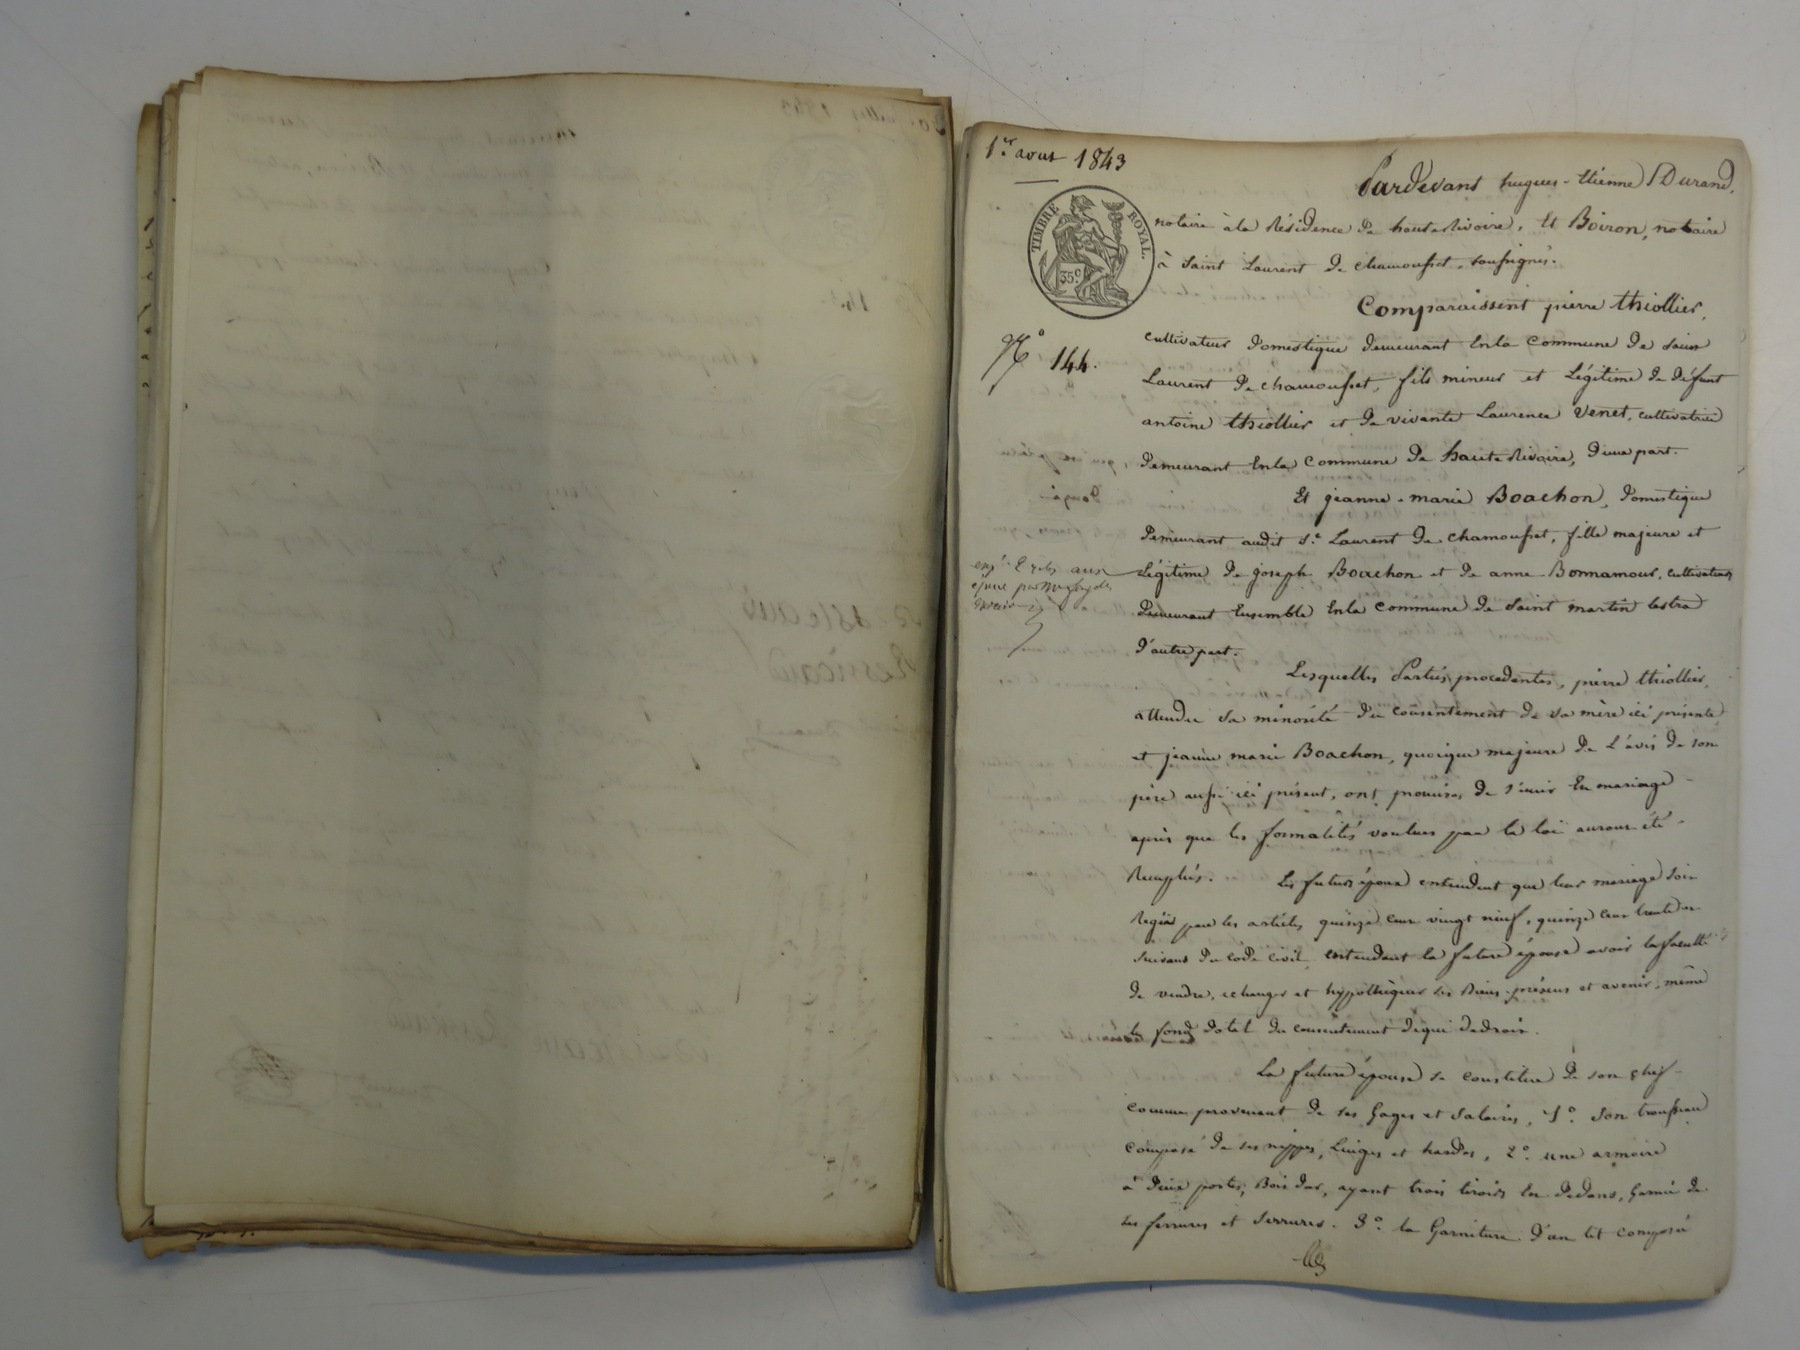 1er aout 1843
Pardevant hugues-Etienne Durand,
TIMBRE ROYAL.
35c
notaire à la Résidence de haute Rivoire, Et Boiron, notaire
à Saint Laurent de chamousset, soussignés.
Comparaissent pierre thiollier,
No 144.
cultivateur domestique demeurant Enla Commune de Saint
Laurent de chamousset, fils mineur et Légitime de défunt
antoine thiollier et de vivante Laurence Venet, cultivatrice
demeurant Enla Commune de haute Rivoire, d'une part.
Et jeanne-marie Boachon, domestique
demeurant audit St Laurent de chamousset, fille majeure et
Légitime de joseph Boachon et de anne Bonnamour, cultivateurs
demeurant Ensemble Enla Commune de Saint martin lestra
d'autre part.
Lesquelles Parties procedentes, pierre thiollier,
attendu sa minorité du consentement de sa mère ici présente
et jeanne marie Boachon, quoique majeure de L'avis de son
père aussi ici présent, ont promis de s'unir En mariage
après que les formalités voulues par la loi auront été
Remplies. Les futurs époux entendent que leur mariage soit
Régis par les articles quinze cent vingt neuf, quinze cent trente et
suivans du code civil, entendant la future épouse avoir la faculté
de vendre, echanger et hypothèquer ses Biens présens et avenir, même
le fond dotal du consentement de qui de droit.
La future épouse se constitue de son chef
comme provenant de ses Gages et Salaires, 1o. Son trousseau
composé de ses nippes, Linges et hardes, 2o. une armoire
à deux portes, Bois dur, ayant trois tiroirs En dedans, Garnie de
ses ferrures et serrures. 3o. la Garniture d'un lit composé